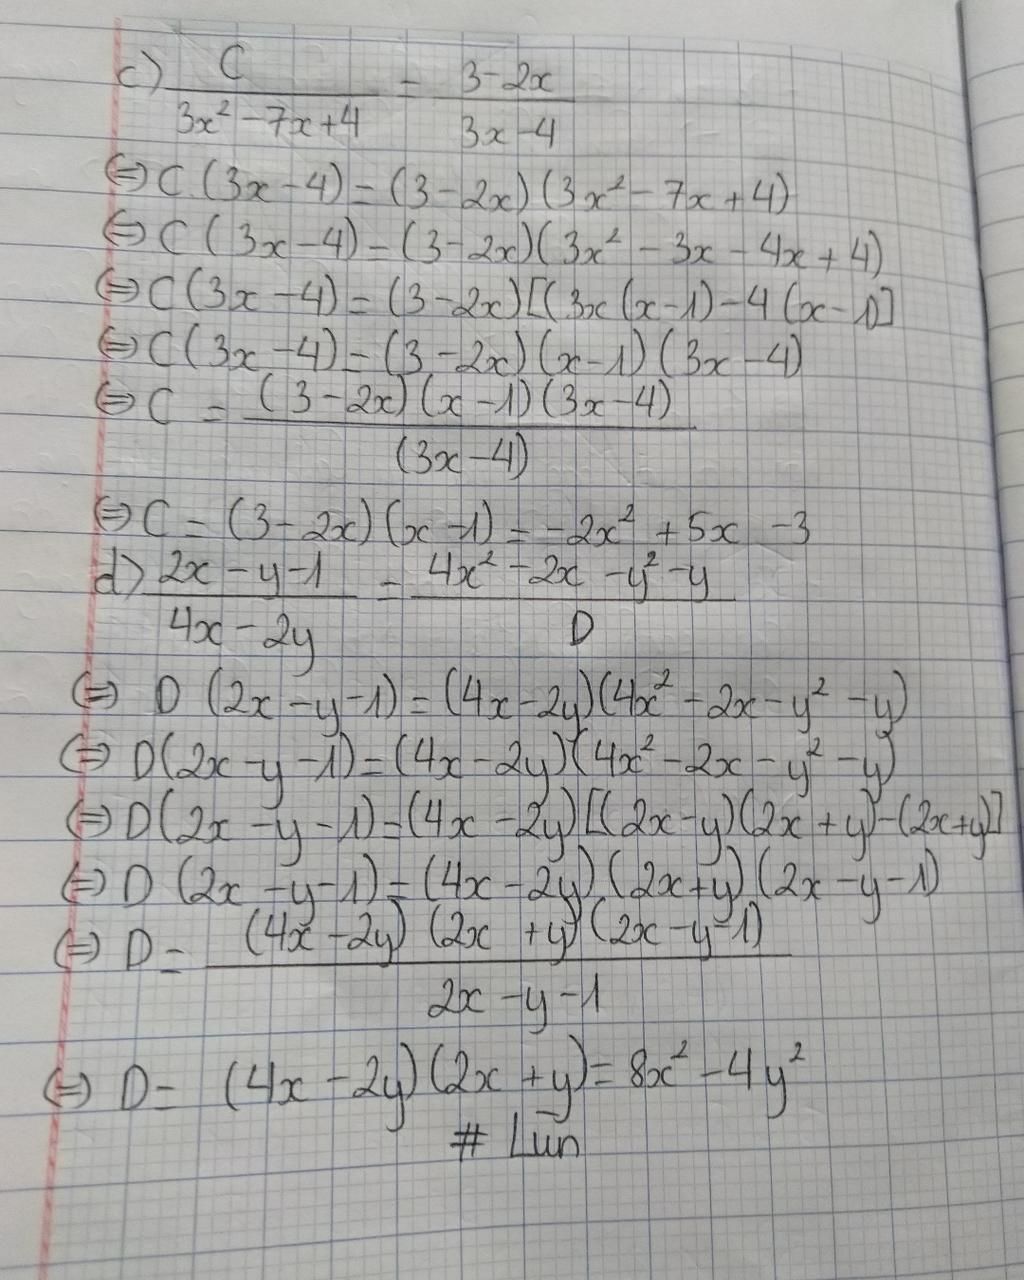 c) C/(3x² - 7x + 4) = (3 - 2x)/(3x - 4)
⇔ C.(3x - 4) = (3 - 2x)(3x² - 7x + 4)
⇔ C(3x - 4) = (3 - 2x)(3x² - 3x - 4x + 4)
⇔ C(3x - 4) = (3 - 2x)[(3x(x - 1) - 4(x - 1)]
⇔ C(3x - 4) = (3 - 2x)(x - 1)(3x - 4)
⇔ C = (3 - 2x)(x - 1)(3x - 4)/(3x - 4)
⇔ C = (3 - 2x)(x - 1) = -2x² + 5x - 3
d) (2x - y - 1)/(4x - 2y) = (4x² - 2x - y² - y)/D
⇔ D(2x - y - 1) = (4x - 2y)(4x² - 2x - y² - y)
⇔ D(2x - y - 1) = (4x - 2y)(4x² - 2x - y² - y)
⇔ D(2x - y - 1) = (4x - 2y)[(2x - y)(2x + y) - (2x + y)]
⇔ D(2x - y - 1) = (4x - 2y)(2x + y)(2x - y - 1)
⇔ D = (4x - 2y)(2x + y)(2x - y - 1)/(2x - y - 1)
⇔ D = (4x - 2y)(2x + y) = 8x² - 4y²
# Lun